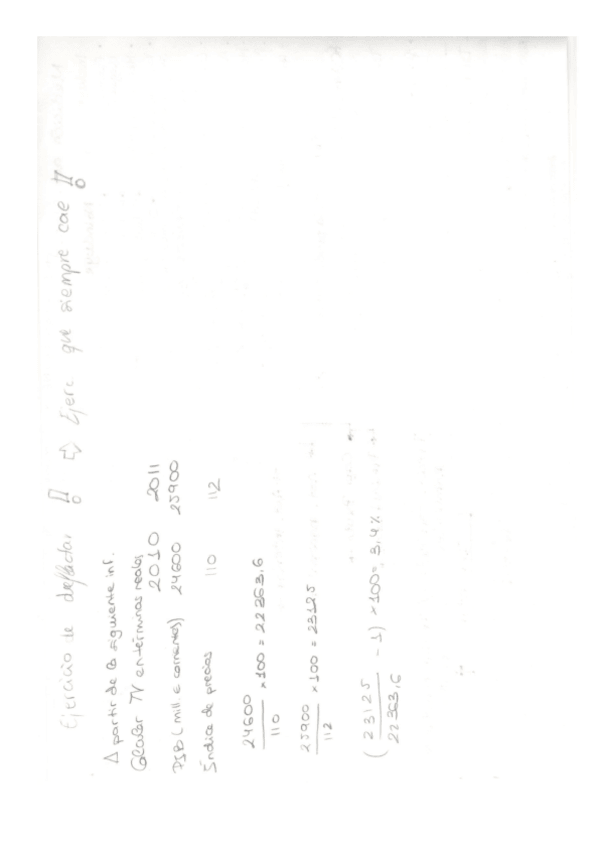 Ejercicio de deflactar !! ⇨ Ejerc que siempre cae !!
A partir de la siguiente inf.
Calcular TV en términos reales
2010 2011
PIB (mill € corrientes) 24600 25900
Índice de precios 110 112
24600
110
×100 = 22363,6
25900
112
×100 = 23125
( 23125
22363,6
- 1) ×100 = 3,4%